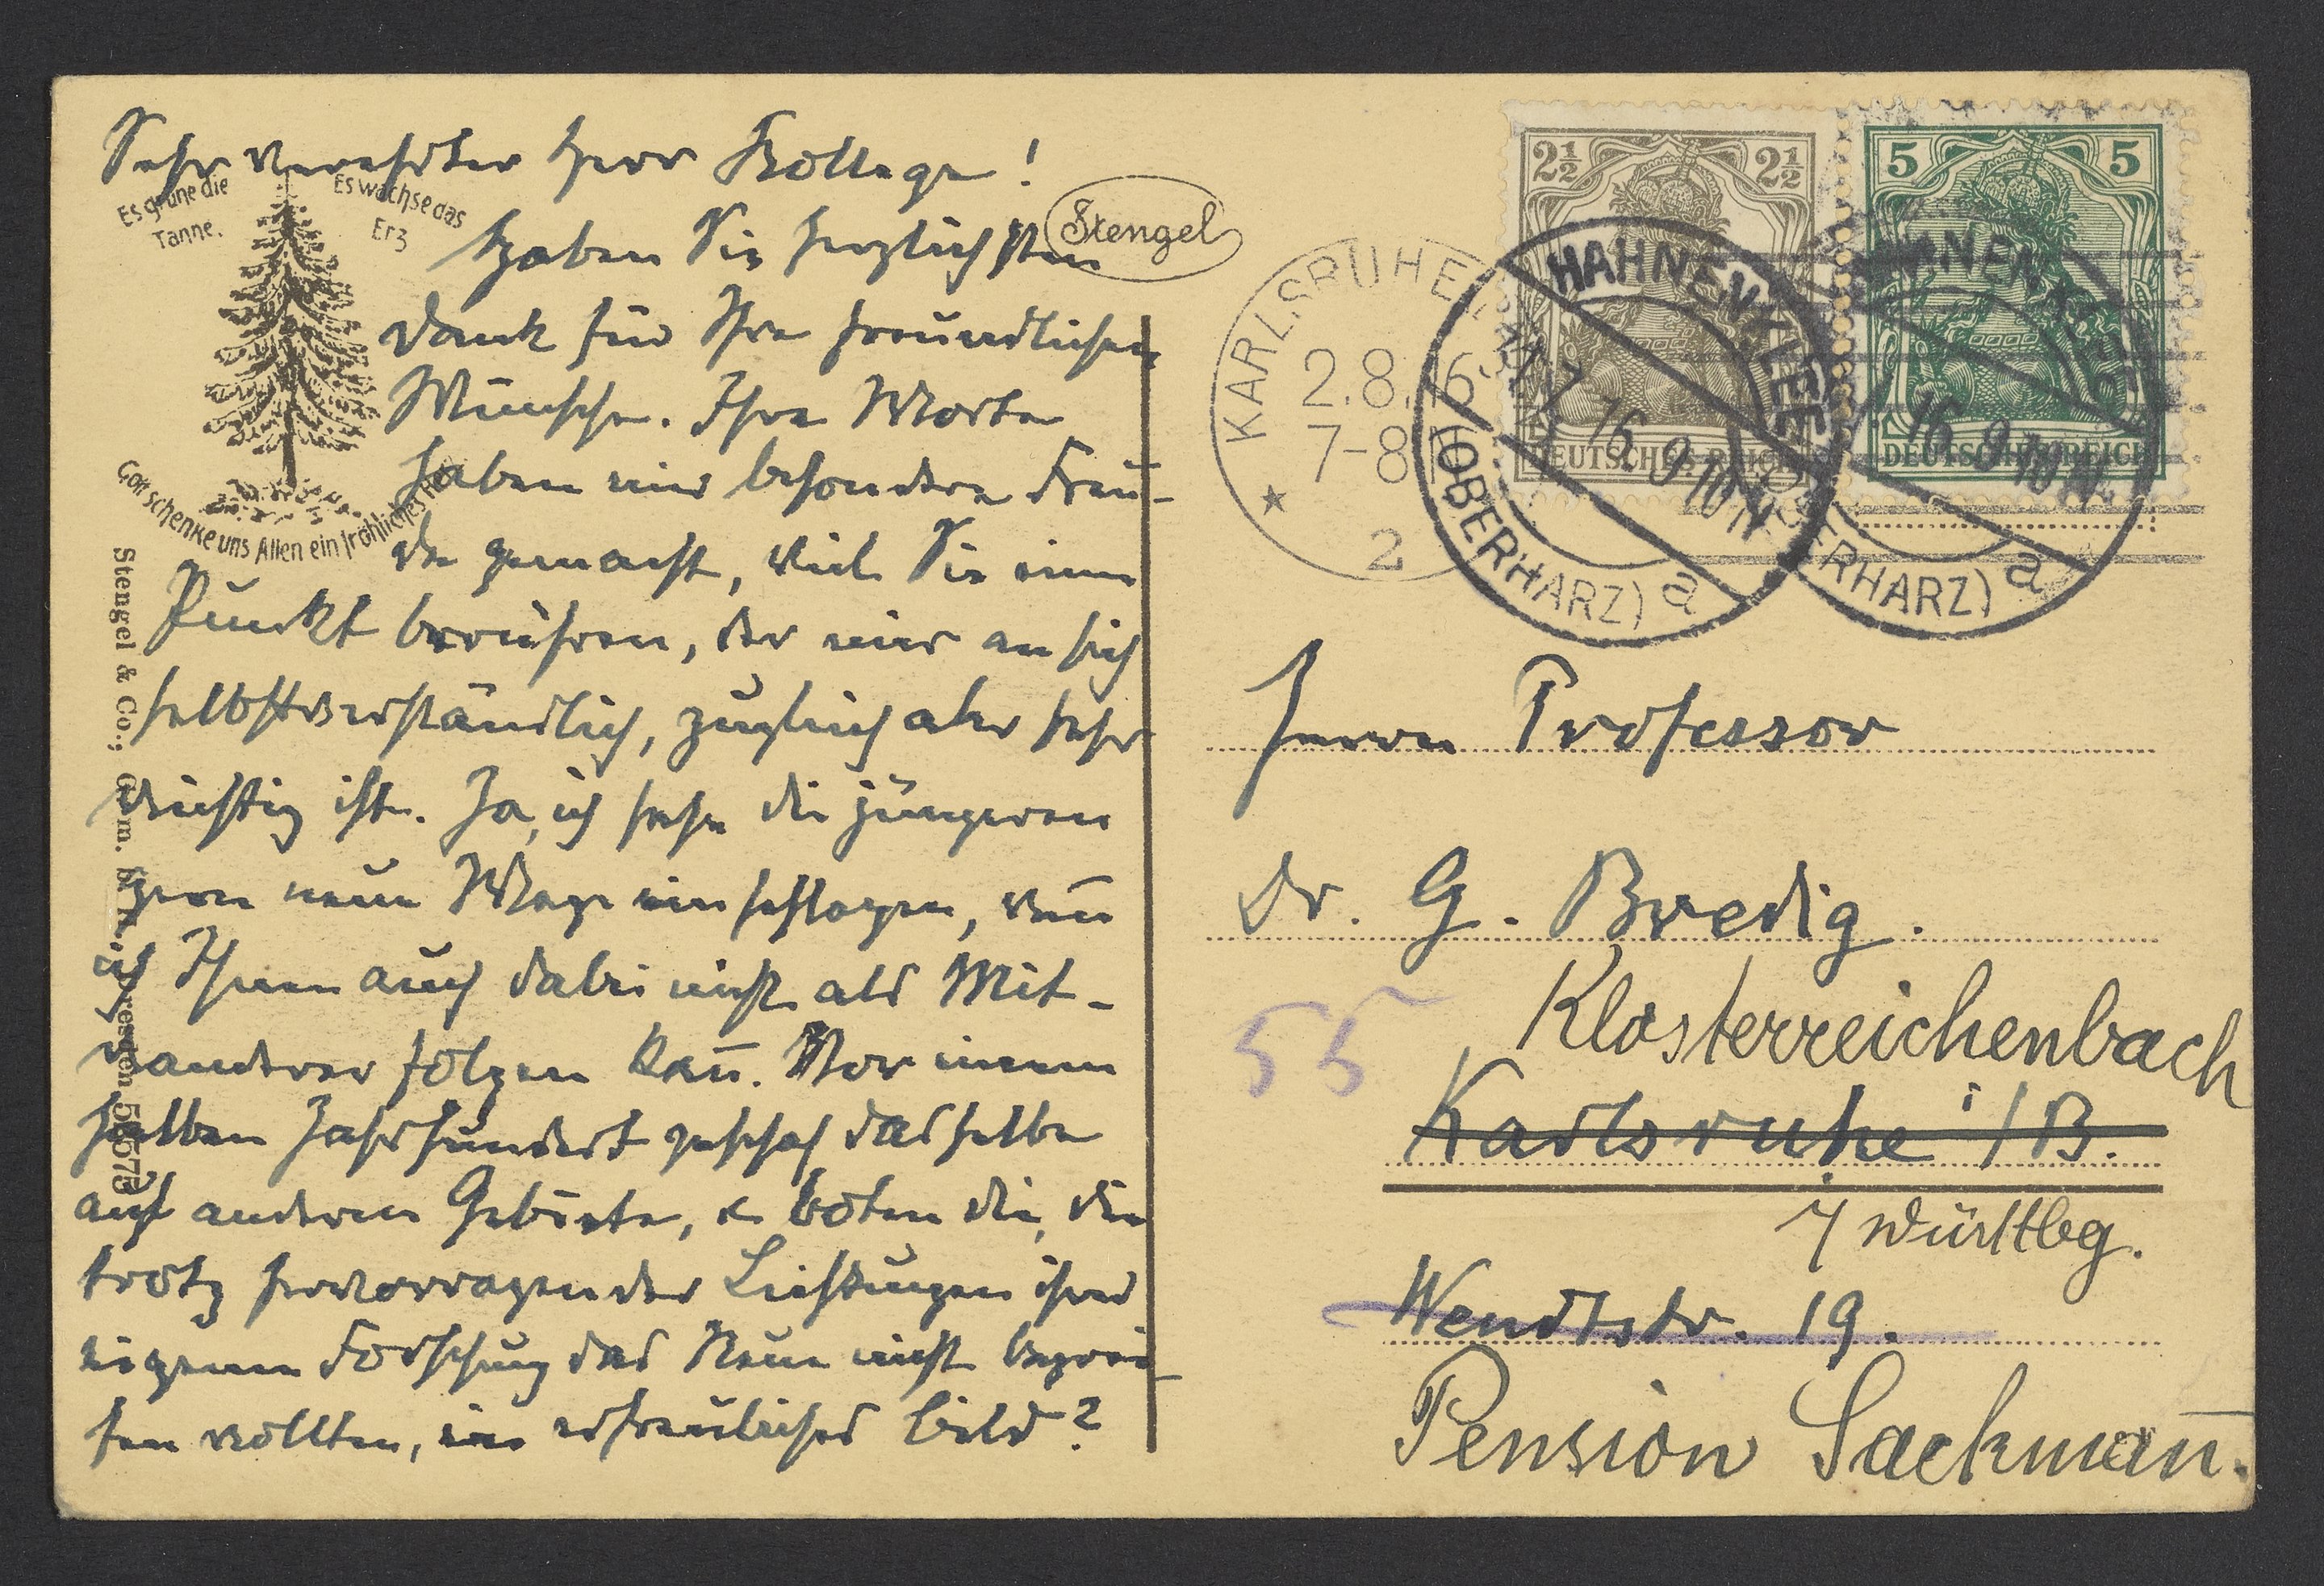 Sehr verehrter Herr Kollege!
Haben Sie herzlichsten
Dank für Ihre freundlichen
Wünsche. Ihre Worte
haben mir besondere Freu-
de gemacht, weil Sie einen
Punkt berühren, der mir an sich
selbstverständlich, zugleich aber sehr
wichtig ist. Ja, ich sehe die jüngeren
gern neue Wege einschlagen, weñ
ich Ihnen auch dabei nicht als Mit-
wanderer folgen kañ. Vor einem
halben Jahrhundert geschah dasselbe
auf anderem Gebiete, u. boten die, die
trotz hervorragender Leistungen ihrer
eigenen Forschung das Neue nicht begrei-
fen wollten, ein erfreuliches Bild?
Es grüne die
Tanne.
Es wachse das
Erz
Gott schenke uns Allen ein fröhliches
Stengel
Stengel & Co., G. m. b. H., Dresden
KARLSRUHE
2.8.16
7-8
2
HAHNENKLEE
31.7.16. 9-10 N.
(OBERHARZ) a
HAHNENKLEE
16. 9-10 N.
(OBERHARZ) a
2½ 2½
DEUTSCHES REICH
5 5
DEUTSCHES REICH
Herrn Professor
Dr. G. Bredig.
55
Klosterreichenbach
Karlsruhe i/B.
i/Württbg.
Wendtstr. 19.
Pension Sackmañ.